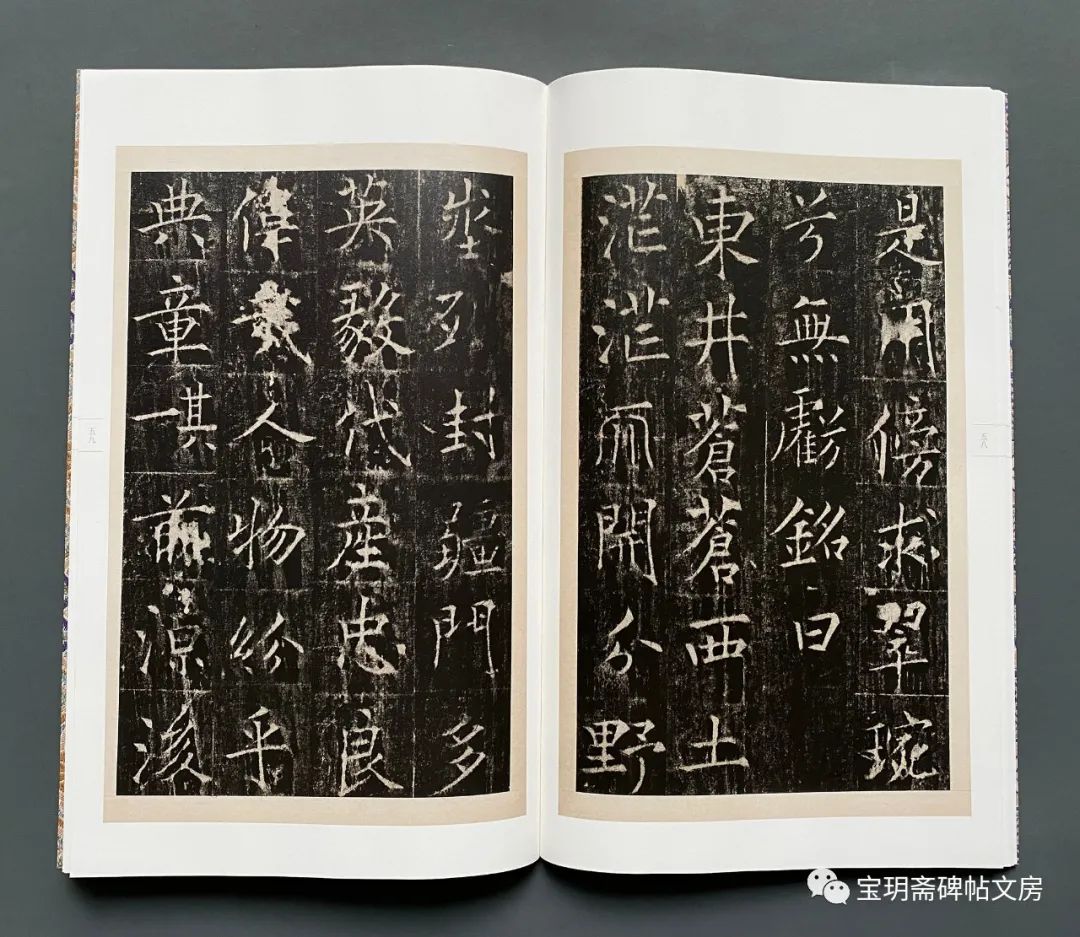 是用傍求翠琬
兮無虧銘曰
東井蒼蒼西土
茫茫開分野
五八
列封疆門多
英毅代産忠良
偉哉人物紛乎
典章其一前源浚
五九
宝玥斋碑帖文房